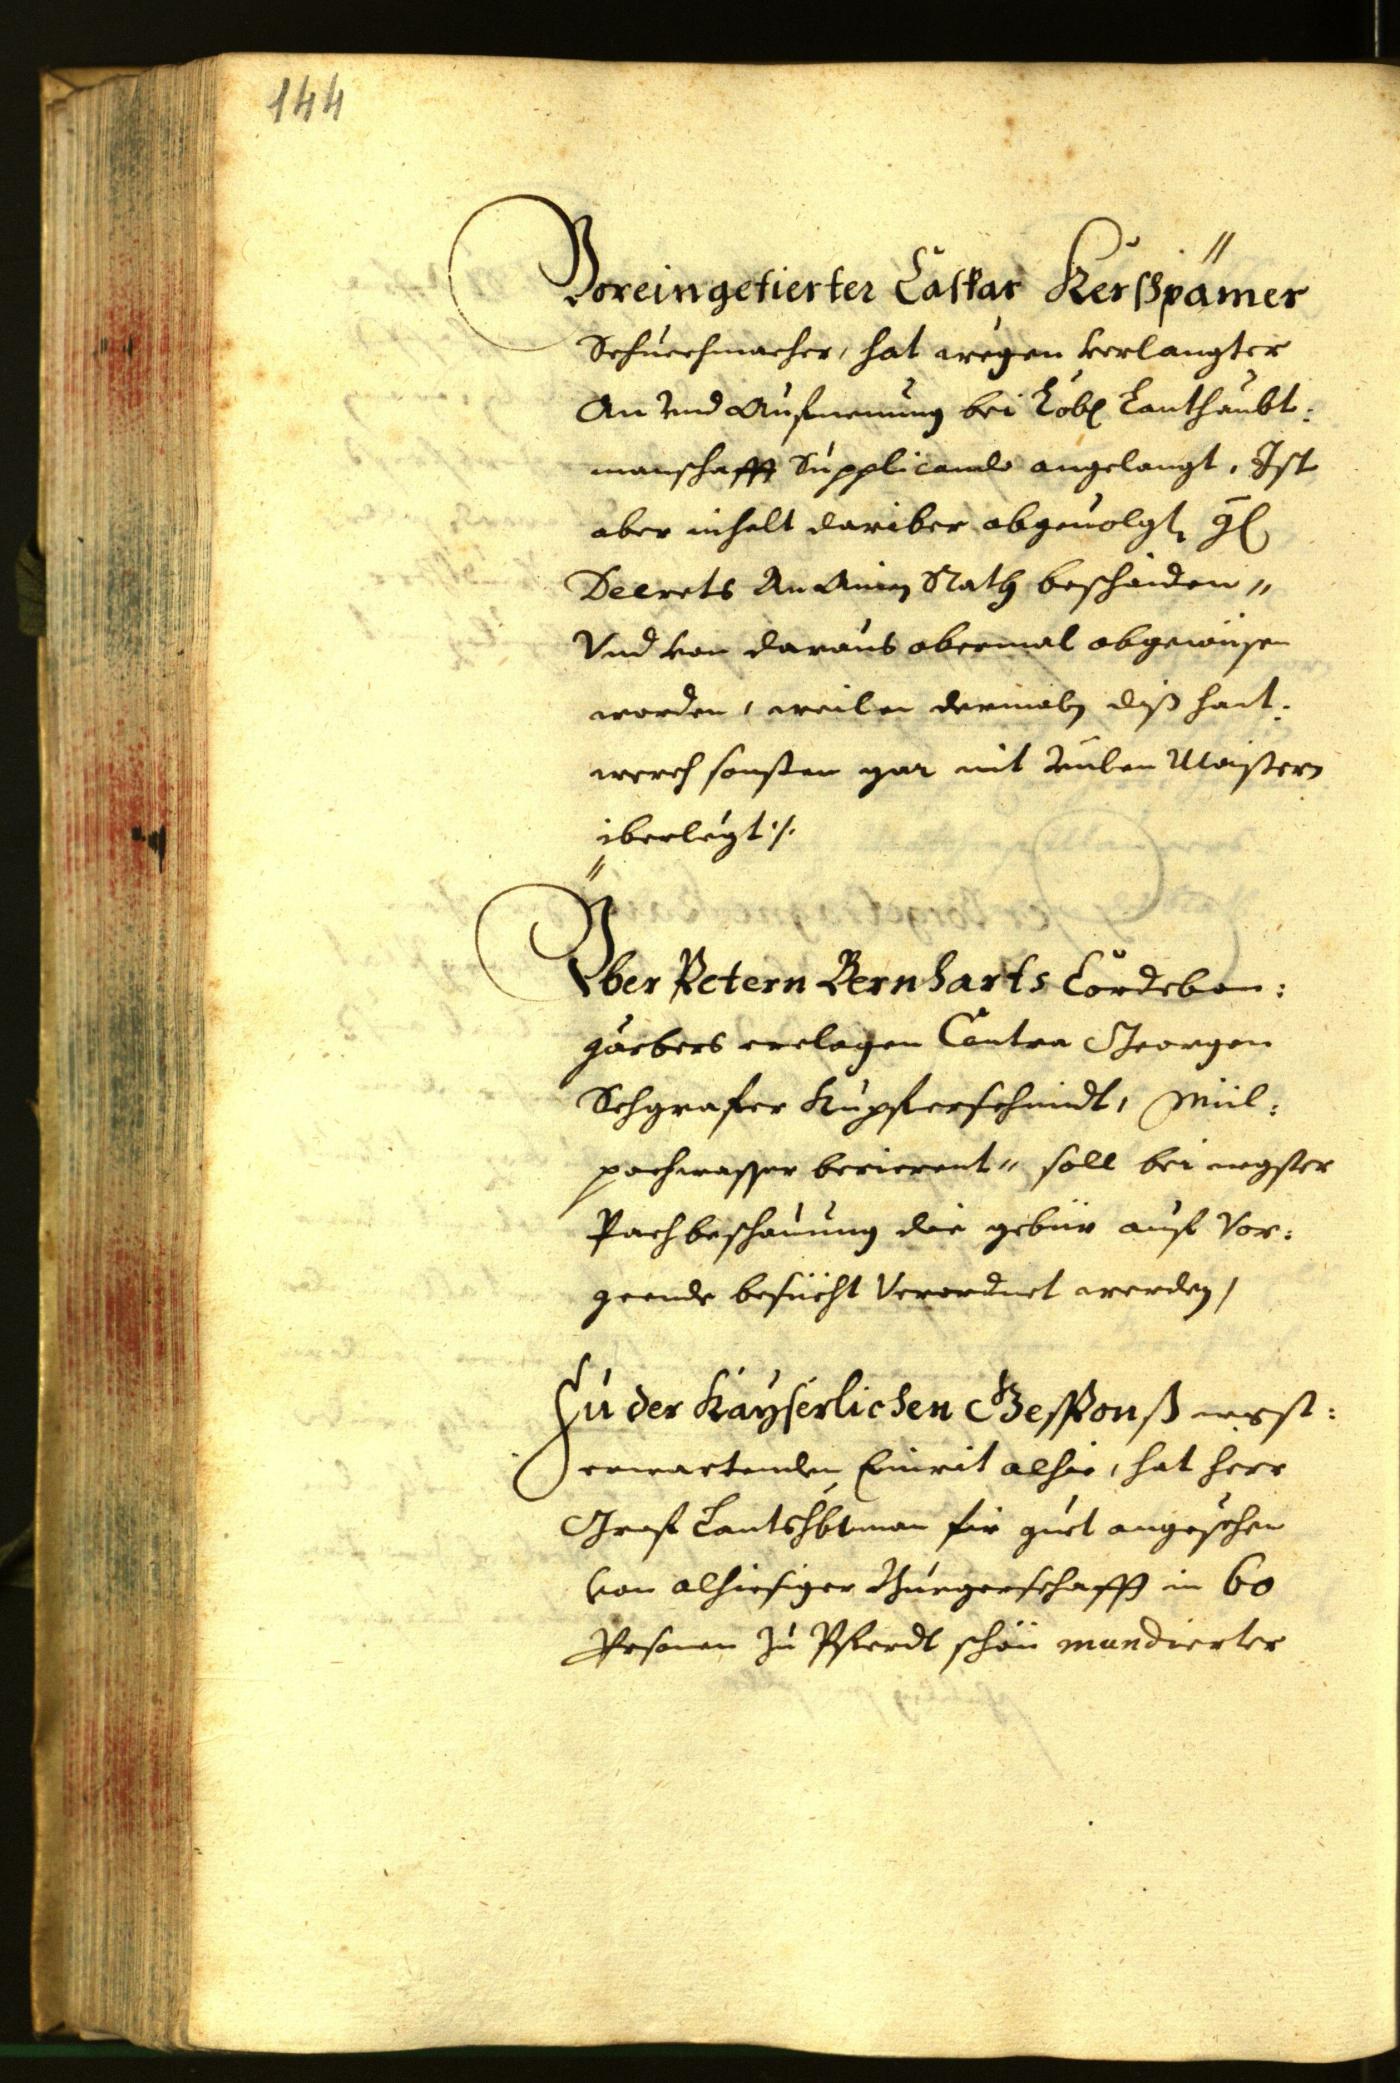 144
Voreingefierter Caspar Kerßpämer
Schuechmacher, hat wegen verlangter
An vnd Aufnemung bei Löbl Lanthaubt:
manschafft Supplicando angelangt, Ist
aber inhalt dariber abgeuolgt, gl
Decrets An Ainen Rath beschaiden"
Vnd von daraus abermal abgewisen
worden, weilen dermaln diß hant:
werch sonsten gar mit Maistern
iberlegt ./.
Über Petern Bernharts Cordeban:
gärbers Contra Georgen
Schgrafer Kupferschmidt, Mül:
pachwasser berierent" soll bei negster
Pachbeschauung die gebür auf Vor:
geende besücht Verordnet werden,
Zu der Kayserlichen Gesponß negst:
erwartenden Einrit alhie, hat herr
Graf Lantshbtman für guet angesehen
von alhiesiger Burgerschafft in 60
Persouen zu Pferdt schön mundierter